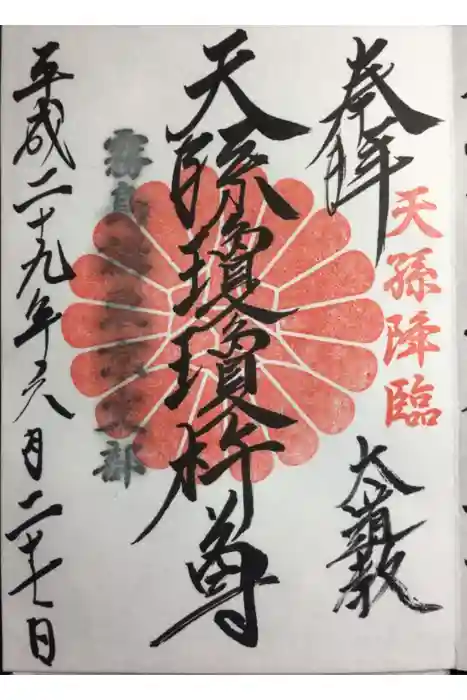 天孫降臨
奉拝
大道教
天孫瓊瓊杵尊
平成二十九年六月二十七日